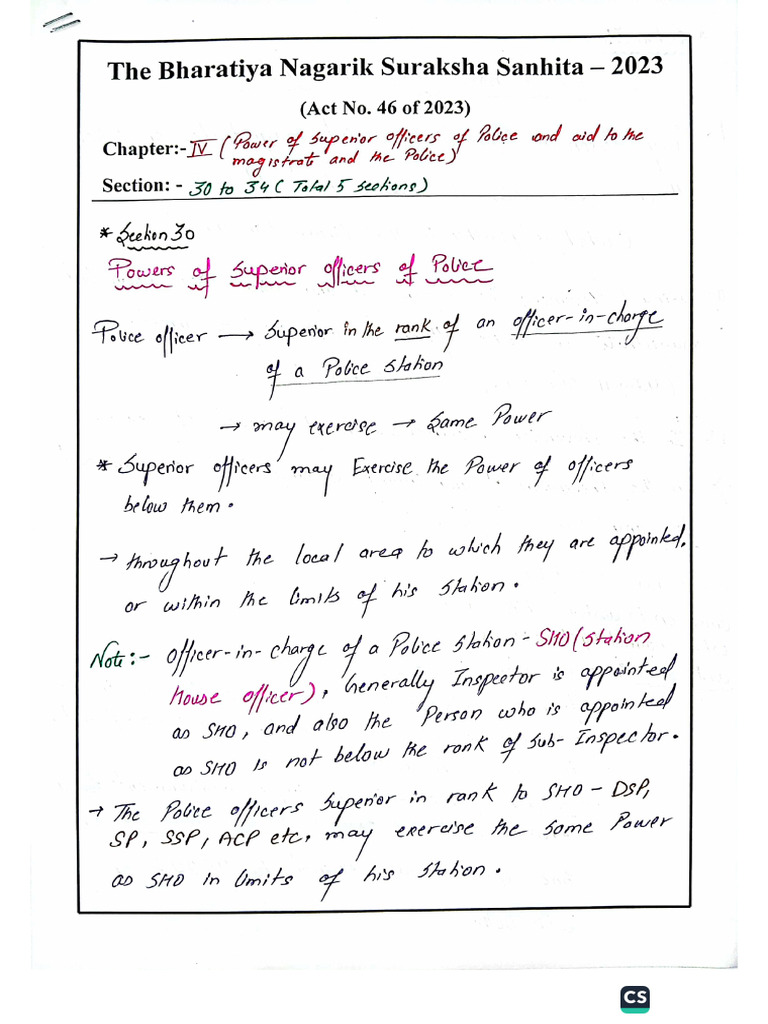 The Bharatiya Nagarik Suraksha Sanhita – 2023
(Act No. 46 of 2023)
Chapter:- IV (Power of Superior officers of Police and aid to the
magistrat and the Police)
Section: - 30 to 34 ( Total 5 sections)
* Section 30
Powers of Superior officers of Police
Police officer → Superior in the rank of an officer-in-charge
of a Police station
→ may exercise → Same Power
* Superior officers may Exercise the Power of officers
below them.
→ throughout the local area to which they are appointed,
or within the limits of his station.
Note:- officer-in-charge of a Police station - SHO (station
house officer), Generally Inspector is appointed
as SHO, and also the Person who is appointed
as SHO is not below the rank of Sub-Inspector.
→ The Police officers Superior in rank to SHO - DSP,
SP, SSP, ACP etc, may exercise the same Power
as SHO in limits of his station.
CS